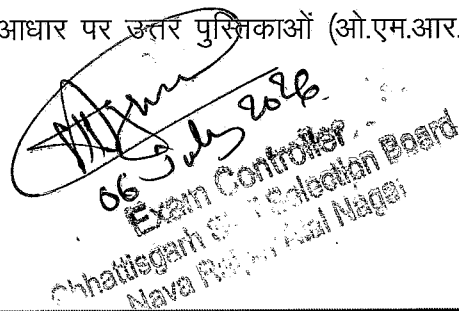 आधार पर उत्तर पुस्तिकाओं (ओ.एम.आर.
06 July 2026
Exam Controller
Chhattisgarh Selection Board
Nava Nagar